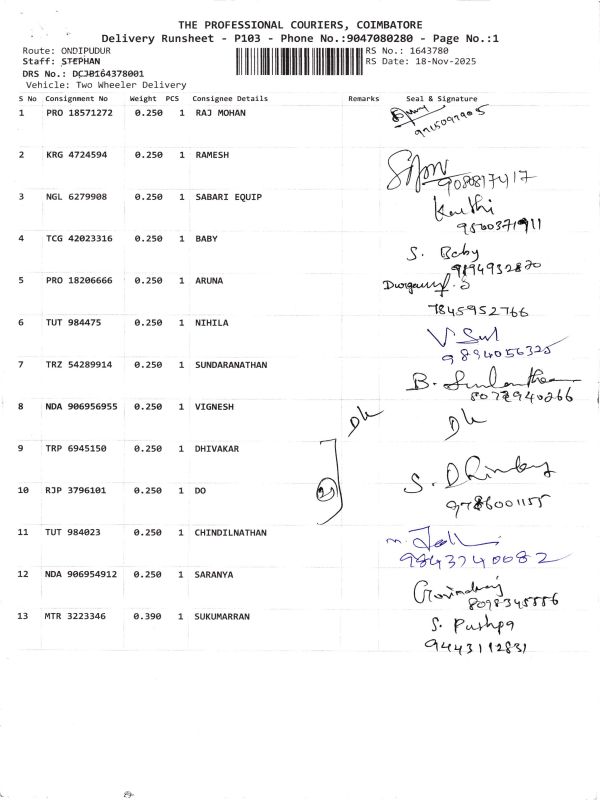 THE PROFESSIONAL COURIERS, COIMBATORE
Delivery Runsheet - P103 - Phone No.:9047080280 - Page No.:1
Route: ONDIPUDUR RS No.: 1643780
Staff: STEPHAN RS Date: 18-Nov-2025
DRS No.: DCJB164378001
Vehicle: Two Wheeler Delivery
S No Consignment No Weight PCS Consignee Details Remarks Seal & Signature
1 PRO 18571272 0.250 1 RAJ MOHAN
2 KRG 4724594 0.250 1 RAMESH
9080817417
3 NGL 6279908 0.250 1 SABARI EQUIP Karthi
9500371911
4 TCG 42023316 0.250 1 BABY S. Baby
9894932820
5 PRO 18206666 0.250 1 ARUNA
7845952766
6 TUT 984475 0.250 1 NIHILA
9894056325
7 TRZ 54289914 0.250 1 SUNDARANATHAN B.
8072940266
8 NDA 906956955 0.250 1 VIGNESH
9 TRP 6945150 0.250 1 DHIVAKAR S.
10 RJP 3796101 0.250 1 DO
9786001155
11 TUT 984023 0.250 1 CHINDILNATHAN
9843740082
12 NDA 906954912 0.250 1 SARANYA Govindaraj
8098345556
13 MTR 3223346 0.390 1 SUKUMARRAN S. Pushpa
9443112831